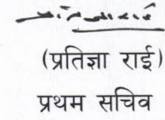 (प्रतिज्ञा राई)
प्रथम सचिव